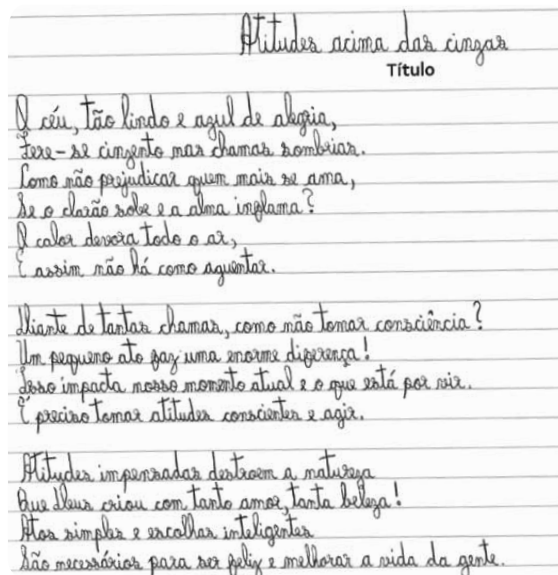 Atitudes acima das cinzas
Título
O céu, tão lindo e azul de alegria,
Fere-se cinzento nas chamas sombrias.
Como não prejudicar quem mais se ama,
Se o clarão sobe e a alma inflama?
O calor devora todo o ar,
E assim não há como aguentar.
Diante de tantas chamas, como não tomar consciência?
Um pequeno ato faz uma enorme diferença!
Isso impacta nosso momento atual e o que está por vir.
É preciso tomar atitudes conscientes e agir.
Atitudes impensadas destroem a natureza
Que Deus criou com tanto amor, tanta beleza!
Atos simples e escolhas inteligentes
São necessários para ser feliz e melhorar a vida da gente.